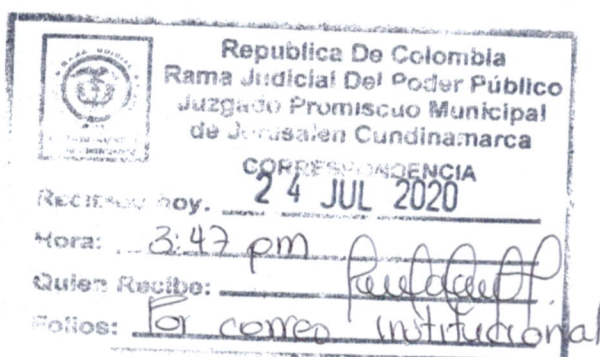 Republica De Colombia
Rama Judicial Del Poder Público
Juzgado Promiscuo Municipal
de Jerusalen Cundinamarca
CORRESPONDENCIA
Recibido hoy. 24 JUL 2020
Hora: 3:47 pm
Quien Recibe:
Folios: Por correo institucional